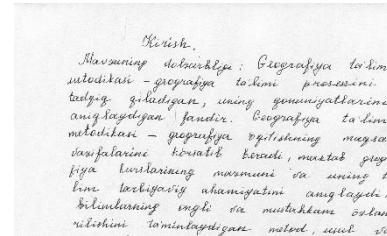 Kirish.
Mavzuning dolzarbligi: Geografiya ta'lim
metodikasi – geografiya ta'limi prosessini
tadqiq qiladigan, uning qonuniyatlarini
aniqlaydigan fandir. Geografiya ta'lim
metodikasi – geografiya o'qitishning maqsad
vazifalarini ko'rsatib beradi, maktab geog
fiya kurslarining mazmuni va uning t
lim tarbiyaviy ahamiyatini aniqlaydi.
bilimlarning ongli va mustahkam o'zlas
rilishini ta'minlaydigan metod, usul va